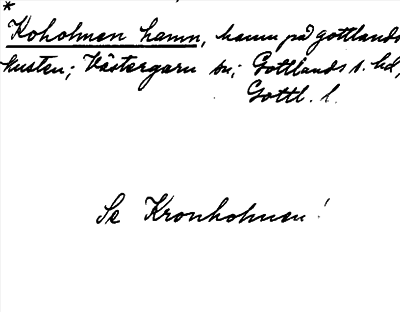 *
Koholmen hamn, hamn på gottlands
kusten; Västergarn sn; Gottlands s. hd,
Gottl. l.
Se Kronholmen!